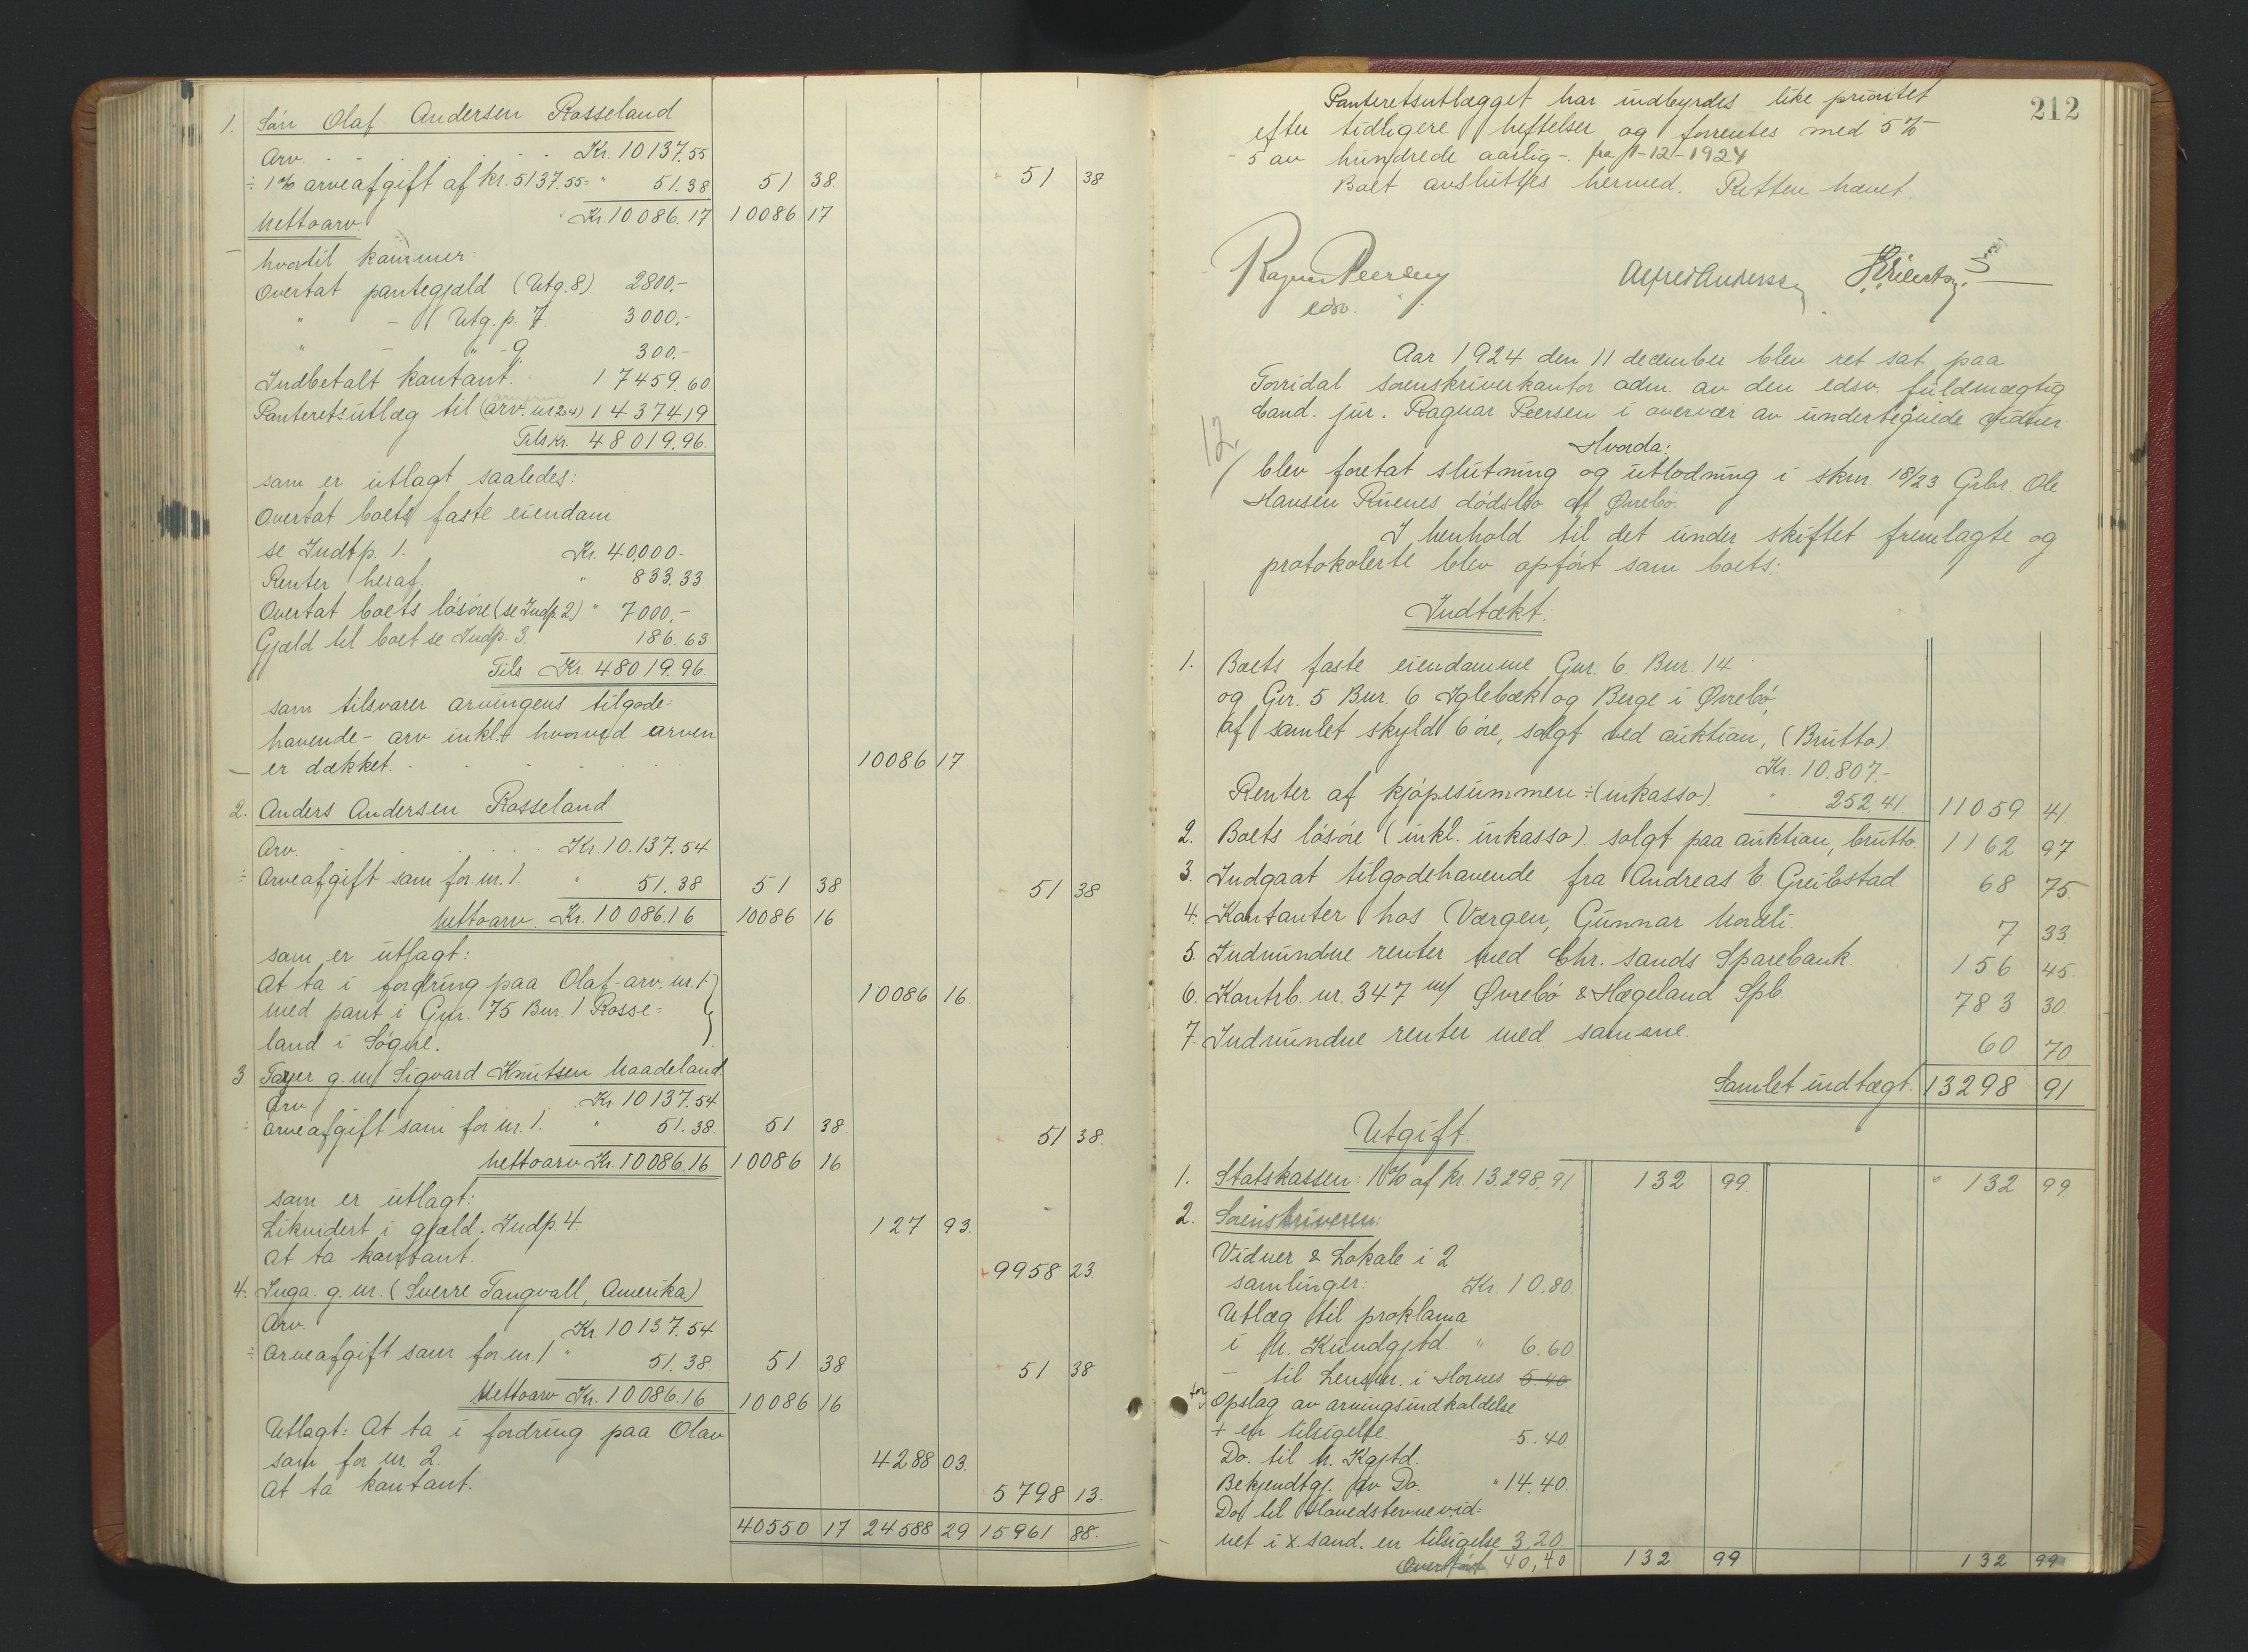 1. Søn Olaf Andersen Rosseland
Arv . . . . . . Kr. 10137.55
÷ 1% arveafgift af kr. 5137.55 = " 51.38 51 38 51 38
Nettoarv. Kr. 10086.17 10086 17
hvortil kommer:
Overtat pantegjæld (Utg. 8) 2800.-
" - (Utg. p. 7. 3000.-
" - " - 9. 300.-
Indbetalt kontant. 17459.60
Panteretsutlæg til (arv. nr 2 & 4) 14374.19
Tils kr. 48019.96.
som er utlagt saaledes:
Overtat boets faste eiendom
se Indt p. 1. Kr. 40,000-
Renter heraf. " 833.33
Overtat boets løsøre (se Indp. 2) " 7000,-
Gjæld til boet se Indp. 3. 186.63
Tils Kr. 48019.96
som tilsvarer arvingens tilgode=
havende - arv inkl.- hvorved arven
er dækket. . . . . 10086 17
2. Anders Andersen Rosseland
Arv. . . . . . Kr. 10.137.54
÷ Arveafgift som for nr. 1. " 51.38 51 38 51 38
Nettoarv. Kr. 10086.16 10086 16
som er utlagt:
At ta i fordring paa Olaf - arv. nr. 1-
med pant i Gnr. 75 Bnr. 1 Rosse= 10086 16.
land i Søgne.
3 Tayer g. m/ Sigvard Knutsen Naadeland
Arv Kr. 10137.54
÷ arveafgift som for nr. 1. " 51.38. 51 38 51 38.
Nettoarv Kr. 10086.16 10086 16
som er utlagt:
Likvidert i gjæld. Indp. 4. 127 93.
At ta kontant. 9958 23
4. Inga. g. m. (Sverre Tangvall, Amerika)
Arv. Kr. 10137.54
÷ Arveafgift som for nr. 1 " 51.38 51 38 51 38
Nettoarv Kr. 10086.16 10086 16
Utlagt: At ta i fordring paa Olav
som for nr. 2. 4288 03.
At ta kontant. 5798 13.
40550 17 24588 29 15961 88.
212
Panteretsutlægget har indbyrdes like prioritet
efter tidligere heftelser og forrentes med 5%
- 5 av hundrede aarlig -. fra 1-12-1924
Boet avsluttes hermed. Retten hævet.
Ragnar Peersen
edsv.
Alfred Andersen
Aar 1924 den 11 december blev ret sat paa
Torridal sorenskriverkontor adm. av den edsv. fuldmægtig
cand. jur. Ragnar Peersen i overvær av undertegnede vidner
12/
Hvorda:
blev foretat slutning og utlodning i skm. 18/23 Grbr Ole
Hansen Ruenes dødsbo af Øvrebø.
I henhold til det under skiftet fremlagte og
protokolerte blev opført som boets:
Indtækt:
1. Boets faste eiendomme Gnr. 6. Bnr. 14
og Gnr. 5 Bnr. 6 Iglebæk og Berge i Øvrebø,
af samlet skyld 6 øre, solgt ved auktion, (Brutto).
Kr. 10.807.-
Renter af kjøpesummen ÷ (inkasso). " 252.41 11059 41.
2. Boets løsøre (inkl. inkasso). solgt paa auktion, brutto. 1162 97
3. Indgaat tilgodehavende fra Andreas E. Greibstad 68 75.
4. Kontanter hos Værgen, Gunnar Nordli. 7 33.
5. Indvundne renter med Chr. sands Sparebank. 156 45.
6. Kontrb. nr. 347 m/ Øvrebø & Hægeland Spb. 783 30.
7. Indvundne renter med samme. 60 70
Samlet indtægt. 13298 91
Utgift.
1. Statskassen: 1% af kr. 13.298.91 132 99. 132 99
2. Sorenskriveren:
Vidner & Lokale i 2
samlinger: Kr. 10.80.
Utlæg til proklama
i N. Kundgjtd. " 6.60.
- til Lensm. i Hornes 5.40
for opslag av arvingsindkaldelse
+ en tilsigelse. 5.40.
Do. til N. Kgjtd.
Bekjendtgj. av Do. " 14.40.
Do til Hovedstevnevid=
net i X. sand. en tilsigelse 3.20.
Overført 40,40 132 99 132 99